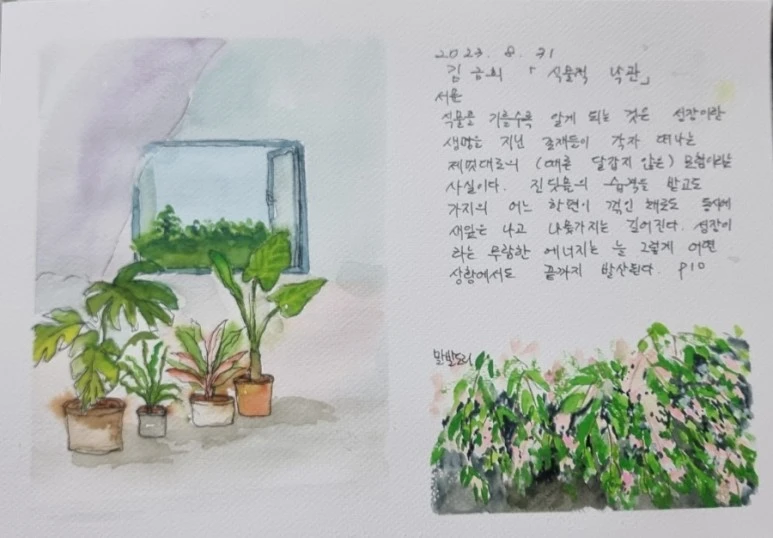 2023. 8. 31
김금희 「식물적 낙관」
서문
식물을 기를수록 알게 되는 것은 성장이란
생명을 지닌 존재들이 각자 떠나는
제멋대로의 (때론 달갑지 않은) 모험이라는
사실이다. 진딧물의 습격을 받고도
가지의 어느 한편이 꺾인 채로도 동시에
새잎은 나고 나뭇가지는 길어진다. 성장이
라는 무람한 에너지는 늘 그렇게 어떤
상황에서도 끝까지 발산된다. p10
말발도리